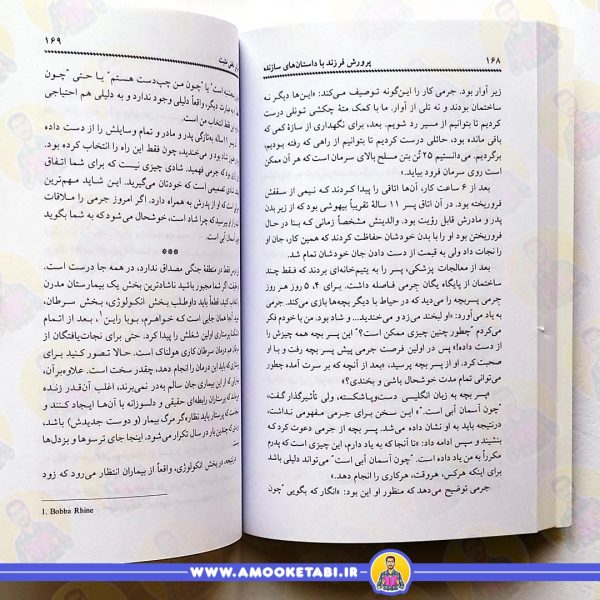 ۱۶۸ پرورش فرزند با داستان‌های سازنده
زیر آوار بود. جرمی کار را این‌گونه توصیف می‌کند: «این‌ها دیگر نه
ساختمان بودند و نه تلی از آوار. ما با کمک متۀ چکشی تونلی درست
کردیم تا بتوانیم از مسیر رد شویم. بعد، برای نگهداری از سازۀ کمی که
باقی مانده بود، حائلی درست کردیم تا بتوانیم از راهی که رفته بودیم،
برگردیم. می‌دانستیم ۲۵ تُن بتن مسلح بالای سرمان است که هر آن ممکن
است روی سرمان فرود بیاید.»
بعد از ۶ ساعت کار، آن‌ها اتاقی را پیدا کردند که نیمی از سقفش
فروریخته بود. در آن اتاق پسر ۱۱ سالۀ تقریباً بیهوشی بود که از زیر بدن
پدر و مادرش قابل رؤیت بود. والدینش مشخصاً زمانی که بنا در حال
فروریختن بود، او را با بدن خودشان حفاظت کردند که همین کار، جان او
را نجات داد ولی به قیمت از دست دادن جان خودشان تمام شد.
بعد از معالجات پزشکی، پسر به یتیم‌خانه‌ای برده شد که فقط چند
ساختمان از پایگاه یگان جرمی فاصله داشت. برای ۴، ۵ روز هر روز
جرمی پسربچه را می‌دید که در حیاط با دیگر بچه‌ها بازی می‌کند. جرمی
به یاد می‌آورد: «او لبخند می‌زد و می‌خندید... و شاد بود. من پیش خودم فکر
می‌کردم "چطور چنین چیزی ممکن است؟" این پسر بچه همه چیزش را
از دست داده!» پس در اولین فرصت جرمی پیش پسر بچه رفت و با او
صحبت کرد. او از پسر بچه پرسید، «بعد از آنچه که به سرت آمده چطور
می‌توانی تمام مدت خوشحال باشی و بخندی؟»
«پسر بچه به زبان انگلیسی دست‌وپاشکسته، ولی تأثیرگذار گفت،
"چون آسمان آبی است."» این سخن برای جرمی مفهومی نداشت،
درنتیجه باید به او نشان داده می‌شد. پسر بچه از جرمی دعوت کرد که
بنشیند و سپس ادامه داد: «تا آنجا که به یاد دارم، این چیزی است که پدرم
مکرراً به من یاد داده است. "چون آسمان آبی است" می‌تواند دلیلی باشد
برای اینکه هرکس، هروقت، هرکاری را انجام دهد.»
جرمی توضیح می‌دهد که منظور او این بود: «انگار که بگویی "چون
۱۶۹
است" یا "چون من چپ‌دست هستم" یا حتی "چون
دیگر، واقعاً دلیلی وجود ندارد و به دلیلی هم احتیاجی
فقط انتخاب من است.
۱۱ساله به‌تازگی پدر و مادر و تمام وسایلش را از دست داده
بود و می‌خندید، چون فقط این راه را انتخاب کرده بود.
جرمی فهمید. شادی چیزی نیست که برای شما اتفاق
تصمیمی است که خودتان می‌گیرید. این شاید مهم‌ترین
که او از پدرش به همراه دارد. اگر امروز جرمی را ملاقات
بپرسید که چرا شاد است، خوشحال می‌شود که به شما بگوید
آسمان آبی است.
***
فقط در منطقۀ جنگی مصداق ندارد، در همه جا درست است.
شما مجبور باشید ناشادترین بخش یک بیمارستان مدرن
انتخاب کنید، قطعاً باید داوطلب بخش انکولوژی، بخش سرطان،
همان جایی است که خواهرم، بوبا راین۱، بعد از اتمام
پرستاری اولین شغلش را پیدا کرد. حتی برای نجات‌یافتگان از
هم درمان سرطان کاری هولناک است. حالا تصور کنید برای
باید این درمان را انجام دهد، چقدر سخت است. علاوه‌برآن،
که از این بیماری جان سالم به‌در نمی‌برند، اغلب آن‌قدر زنده
که پرستاران رابطه‌ای حقیقی و دلسوزانه با آن‌ها ایجاد کنند و
که پرستار باید نظاره‌گر مرگ بیمار (و دوست جدیدش) باشد،
که چندین بار در سال تکرار می‌شود. اینجا جای ترسوها و بزدل‌ها
درنتیجه، در بخش انکولوژی، واقعاً از بیماران انتظار می‌رود که زود
1. Bobba Rhine
WWW.AMOOKETABI.IR